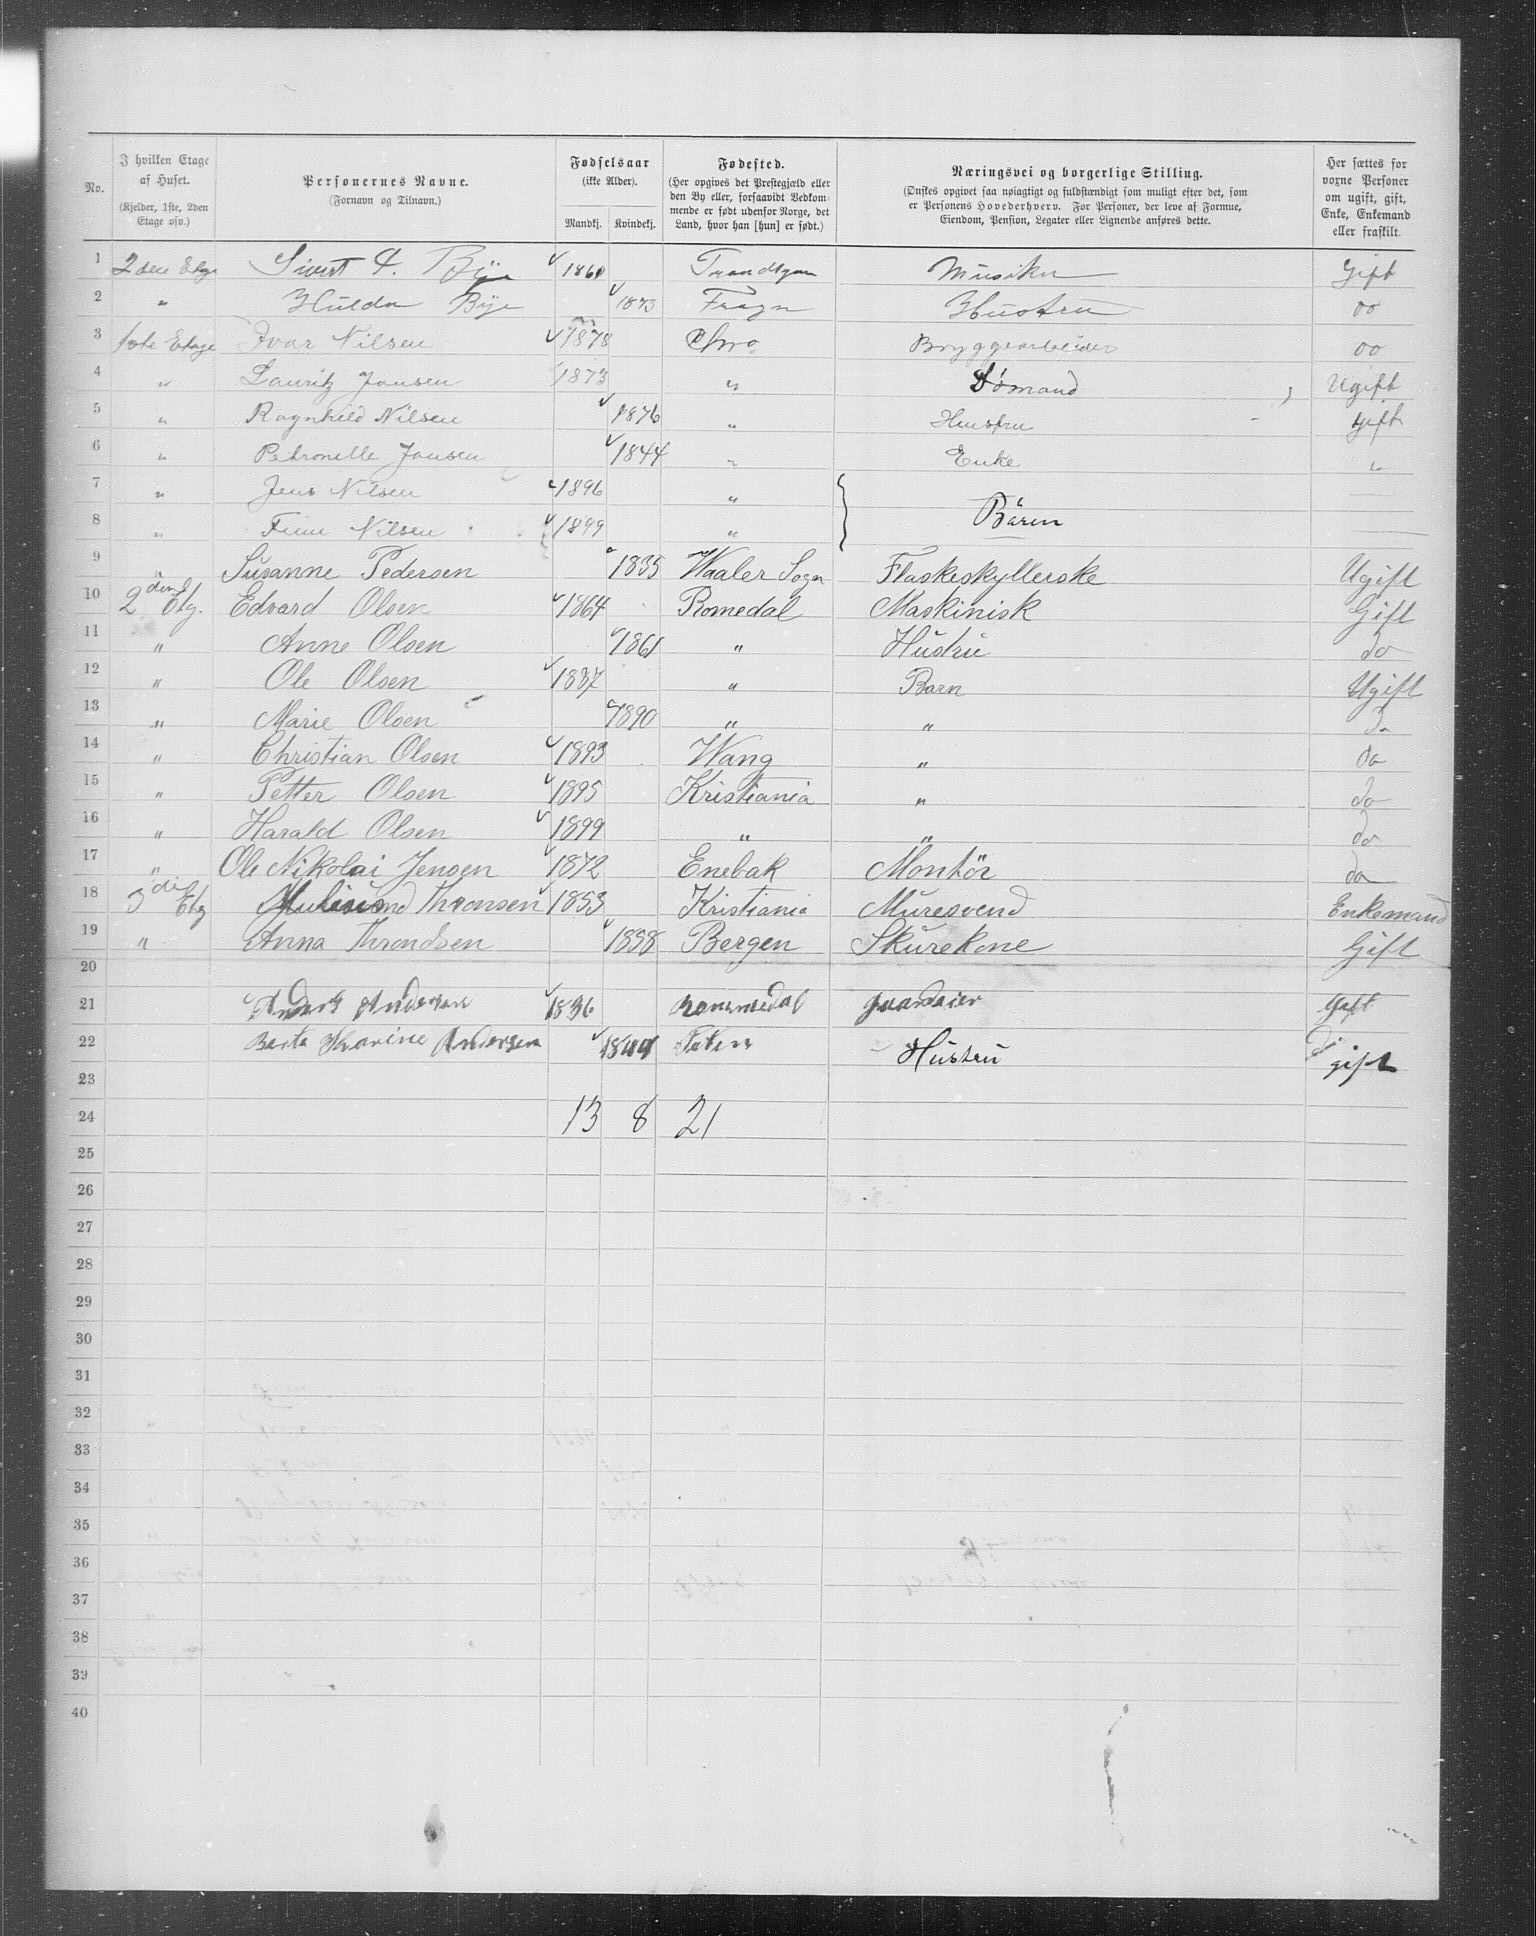 No.
I hvilken Etage af Huset. (Kjelder, 1ste, 2den Etage osv.)
Personernes Navne. (Fornavn og Tilnavn.)
Fødselsaar (ikke Alder). Mandkj. Kvindekj.
Fødested. (Her opgives det Prestegjæld eller den By eller, forsaavidt Vedkommende er født udenfor Norge, det Land, hvor han [hun] er født.)
Næringsvei og borgerlige Stilling. (Ønskes opgivet saa nøiagtigt og fuldstændigt som muligt efter det, som er Personens Hovederhverv. For Personer, der leve af Formue, Eiendom, Pension, Legater eller Lignende anføres dette.
Her sættes for voxne Personer om ugift, gift, Enke, Enkemand eller fraskilt.
1 2den Etge Sivert Bye Musiker Gift
2 " Hulda Bye 1873 Hustru do
3 1ste Etage Ivar Nilsen 1878 Chra Bryggearbeider do
4 " Lauritz Jansen 1873 " Sömand Ugift
5 " Ragnhild Nilsen 1876 " Hustru Gift
6 " Petronelle Jansen 1844 " Enke "
7 " Jens Nilsen 1896 "
8 " Finn Nilsen 1899 " Bären
9 " Susanne Pedersen 1835 Waaler Sogn Flaskeskyllerske Ugift
10 2den Etg. Edvard Olsen 1864 Romedal Maskinisk Gift
11 " Anne Olsen 1861 " Hustru do
12 " Ole Olsen 1887 " Barn Ugift
13 " Marie Olsen 1890 " " do
14 " Christian Olsen 1893 Wang " do
15 " Petter Olsen 1895 Kristiania " do
16 " Harald Olsen 1899 " " do
17 " Ole Nikolai Jensen 1872 Enebak Montör do
18 3di Etg Thronsen 1853 Kristiania Muresvend Enkemand
19 " Anna Throndsen 1858 Bergen Skurekone Gift
20
21 Andersen 1836 Gift
22 Berta Karine Andersen 1844 Hustru gift
23
24 13 8 21
25
26
27
28
29
30
31
32
33
34
35
36
37
38
39
40